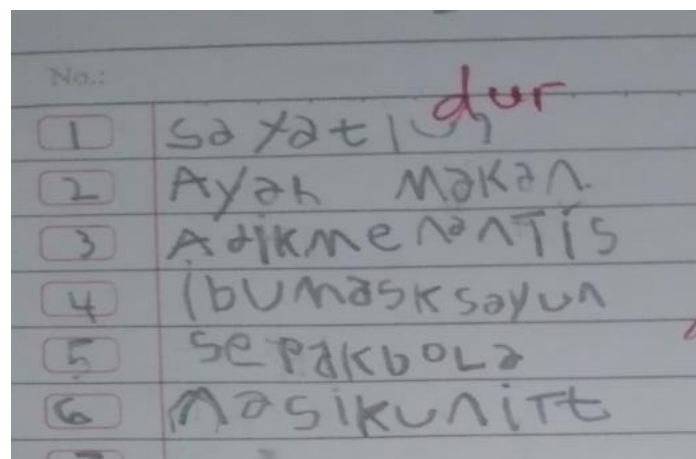 No.:
dur
1 sayatiuh
2 Ayah Makan.
3 Adikmenantis
4 ibumasksayun
5 sepakbola
6 masikunitt